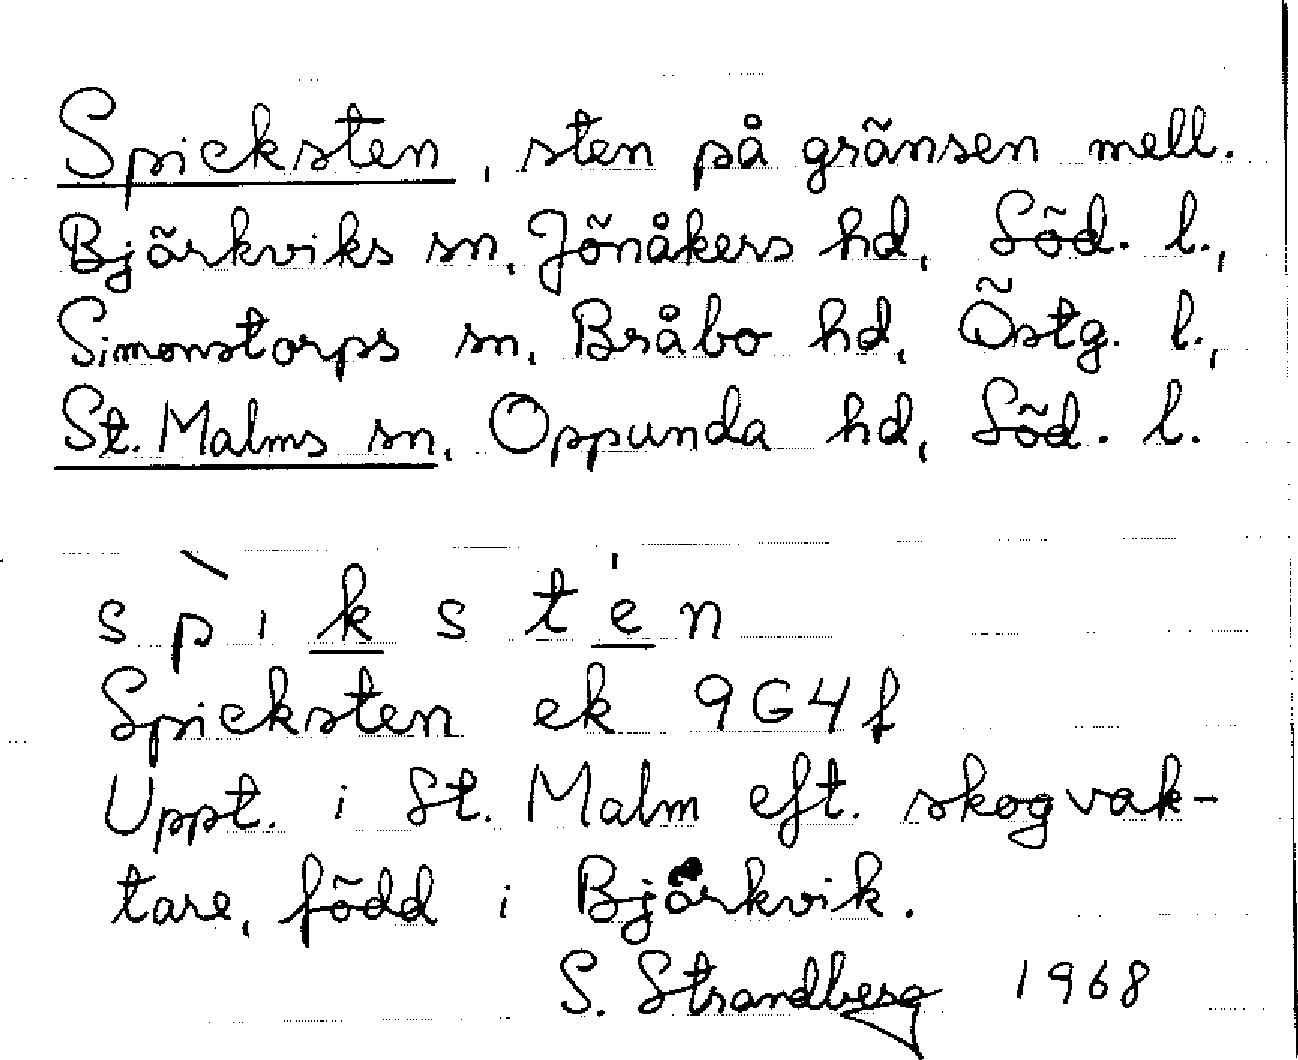 Spicksten, sten på gränsen mell.
Björkviks sn, Jönåkers hd, Söd. l.,
Simonstorps sn, Bråbo hd, Östg. l.,
St. Malms sn, Oppunda hd, Söd. l.
spìkstén
Spicksten ek 9G4f
Uppt. i St. Malm eft. skogvak-
tare, född i Björkvik.
S. Strandberg 1968